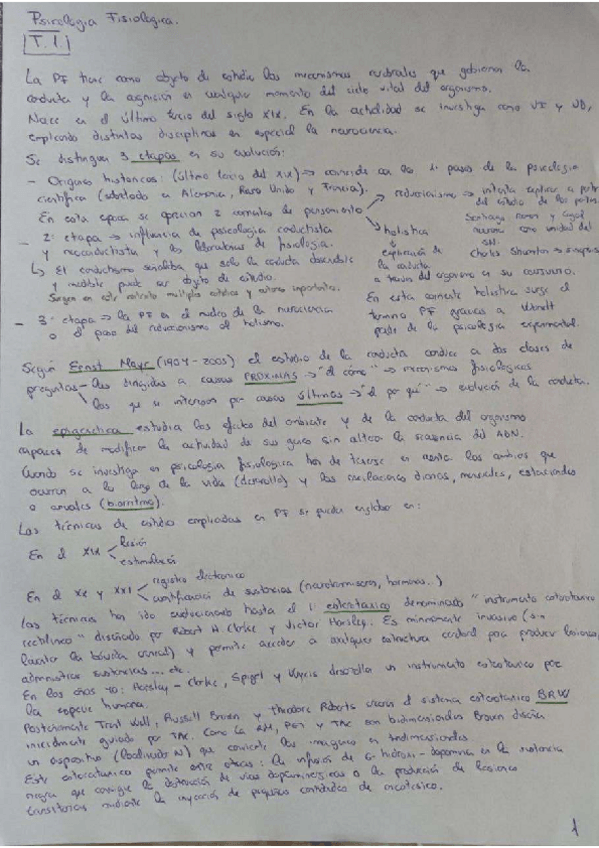 Psicología Fisiológica.
T.1
La PF tiene como objeto de estudio los mecanismos cerebrales que gobiernan la
conducta y la cognición en cualquier momento del ciclo vital del organismo.
Nace en el último tercio del siglo XIX. En la actualidad se investiga como VI y VD,
empleando distintas disciplinas en especial la neurociencia.
Se distinguen 3 etapas en su evolución:
- Orígenes históricos: (último tercio del XIX) → coincide con los 1os pasos de la psicología
científica (sobretodo en Alemania, Reino Unido y Francia).
En esta época se aprecian 2 corrientes de pensamiento
reduccionismo → intenta explicar a partir
del estudio de las partes
Santiago Ramón y Cajal
neurona como unidad del
SN.
Charles Sherrington → sinapsis
holística
explicación de
la conducta
a través del organismo en su conjunto.
En esta corriente holística surge el
término PF gracias a Wundt
padre de la psicología experimental.
- 2ª etapa → influencia de psicología conductista
y neoconductista y los laboratorios de fisiología.
↳ El conductismo señalaba que solo la conducta observable
y medible puede ser objeto de estudio.
Surgen en este contexto múltiples autores importantes.
- 3ª etapa → la PF en el marco de la neurociencia
o el paso del reduccionismo al holismo.
Según Ernst Mayr (1904-2005) el estudio de la conducta conduce a dos clases de
preguntas - las dirigidas a causas PRÓXIMAS → "el cómo" → mecanismos fisiológicos
las que se interesan por causas últimas → "el por qué" → evolución de la conducta.
La epigenética estudia los efectos del ambiente y de la conducta del organismo
capaces de modificar la actividad de sus genes sin alterar la secuencia del ADN.
Cuando se investiga en psicología fisiológica han de tenerse en cuenta los cambios que
ocurren a lo largo de la vida (desarrollo) y las oscilaciones diarias, mensuales, estacionales
o anuales (biorritmo).
Las técnicas de estudio empleadas en PF se pueden englobar en:
En el XIX
lesión
estimulación
En el XX y XXI
registro electrónico
cuantificación de sustancias (neurotransmisores, hormonas..)
Las técnicas han ido evolucionando hasta el 1er estereotáxico denominado "instrumento estereotáxico
rectilíneo" diseñado por Robert H. Clarke y Victor Horsley. Es mínimamente invasivo (sin
levantar la bóveda craneal) y permite acceder a cualquier estructura cerebral para producir lesiones,
administrar sustancias... etc.
En los años 40: Horsley-Clarke, Spiegel y Wycis desarrolla un instrumento estereotáxico para
la especie humana.
Posteriormente Trent Wells, Russell Brown y Theodore Roberts crearon el sistema estereotáxico BRW
inicialmente guiado por TAC. Como la RM, PET y TAC son bidimensionales Brown diseña
un dispositivo (localizador N) que convierte las imágenes en tridimensionales
Este estereotáxico permite entre otras: la infusión de 6-hidroxi-dopamina en la sustancia
negra que consigue la destrucción de vías dopaminérgicas o la producción de lesiones
transitorias mediante la inyección de pequeñas cantidades de anestésico.
1